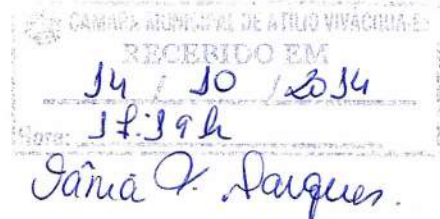 CAMARA MUNICIPAL DE ATILIO VIVACQUA-E
RECEBIDO EM
14 / 10 / 2014
Hora: 17:19 h
Vânia